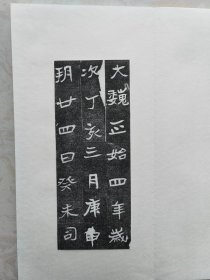 大魏正始四年歲
次丁亥三月庚申
朔廿四日癸未司